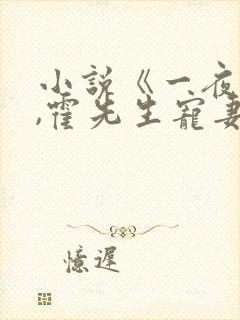 小说《一夜
,霍先生宠妻
憶遲